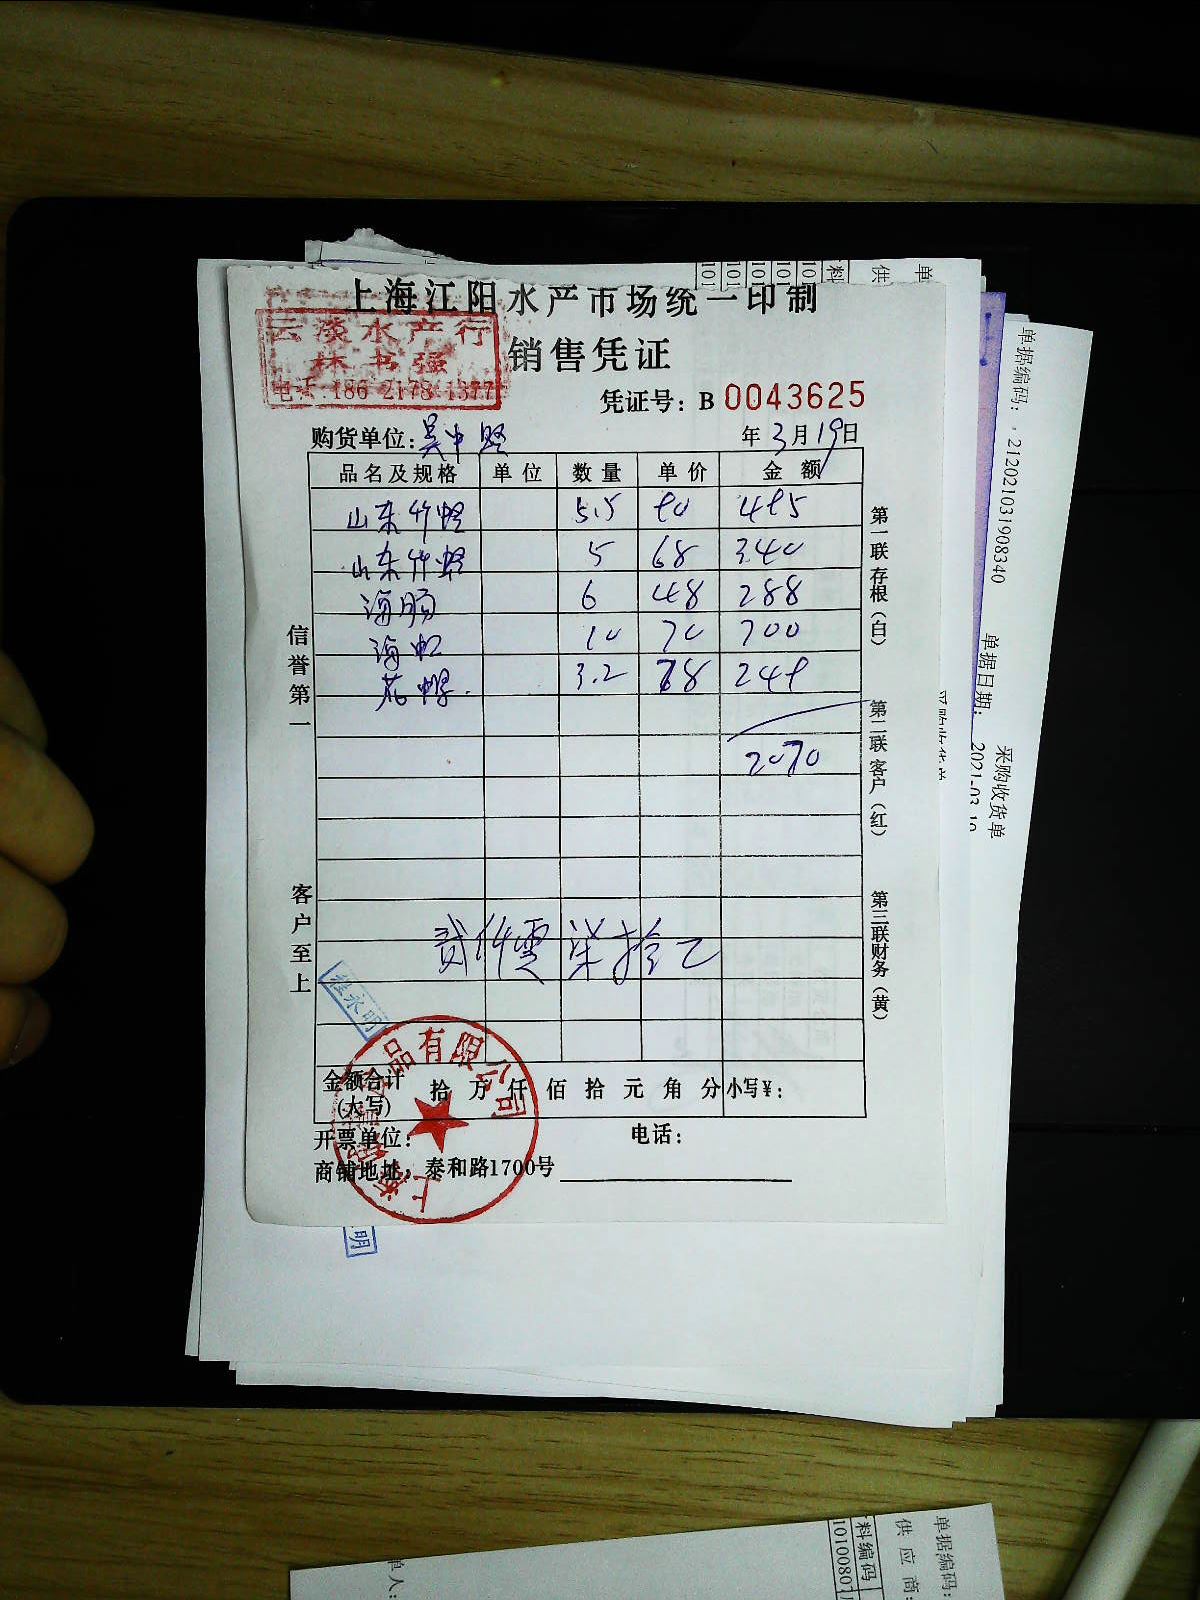 上海江阳水产市场统一印制
云淡水产行
林书强
电话:186 2178 1377
销售凭证
凭证号: B 0043625
购货单位:
年 3月19日
品名及规格 单位 数量 单价 金额
山东竹蛏 5.5 90 495
山东竹蛏 5 68 340
海肠 6 48 288
海虹 10 70 700
3.2 78 249
2070
贰仟零柒拾元
信誉第一
客户至上
第一联存根(白)
第二联客户(红)
第三联财务(黄)
程永明
品有限公司
金额合计
(大写)
拾 万 仟 佰 拾 元 角 分 小写¥:
开票单位:
电话:
商铺地址: 泰和路1700号
明
单据编码: 212021031908340
单据日期: 2021-03-19
采购收货单
采购收货单
单
供
料
101
101
101
101
101
单据编码:
供应商:
料编码
1010080
单人: